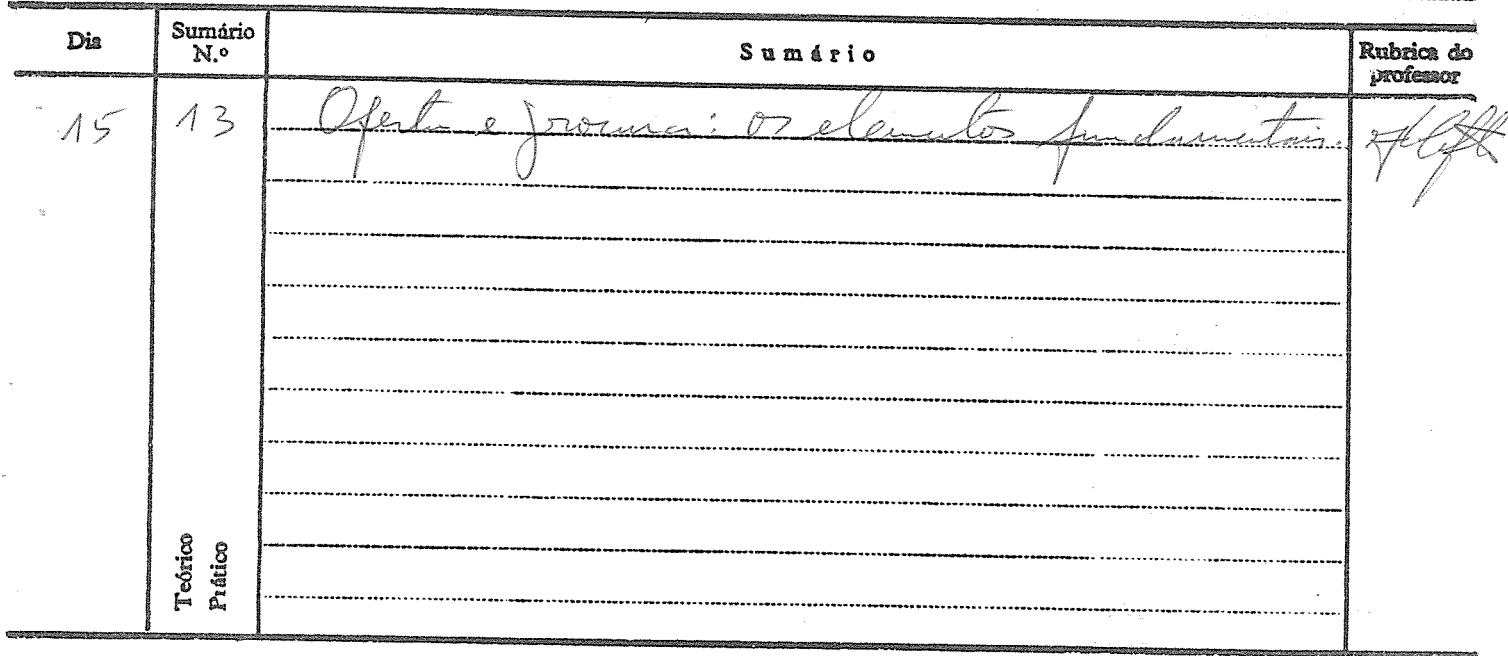 Dia Sumário N.º Sumário Rubrica do professor
15 13 Oferta e procura: os elementos fundamentais.
Teórico
Prático